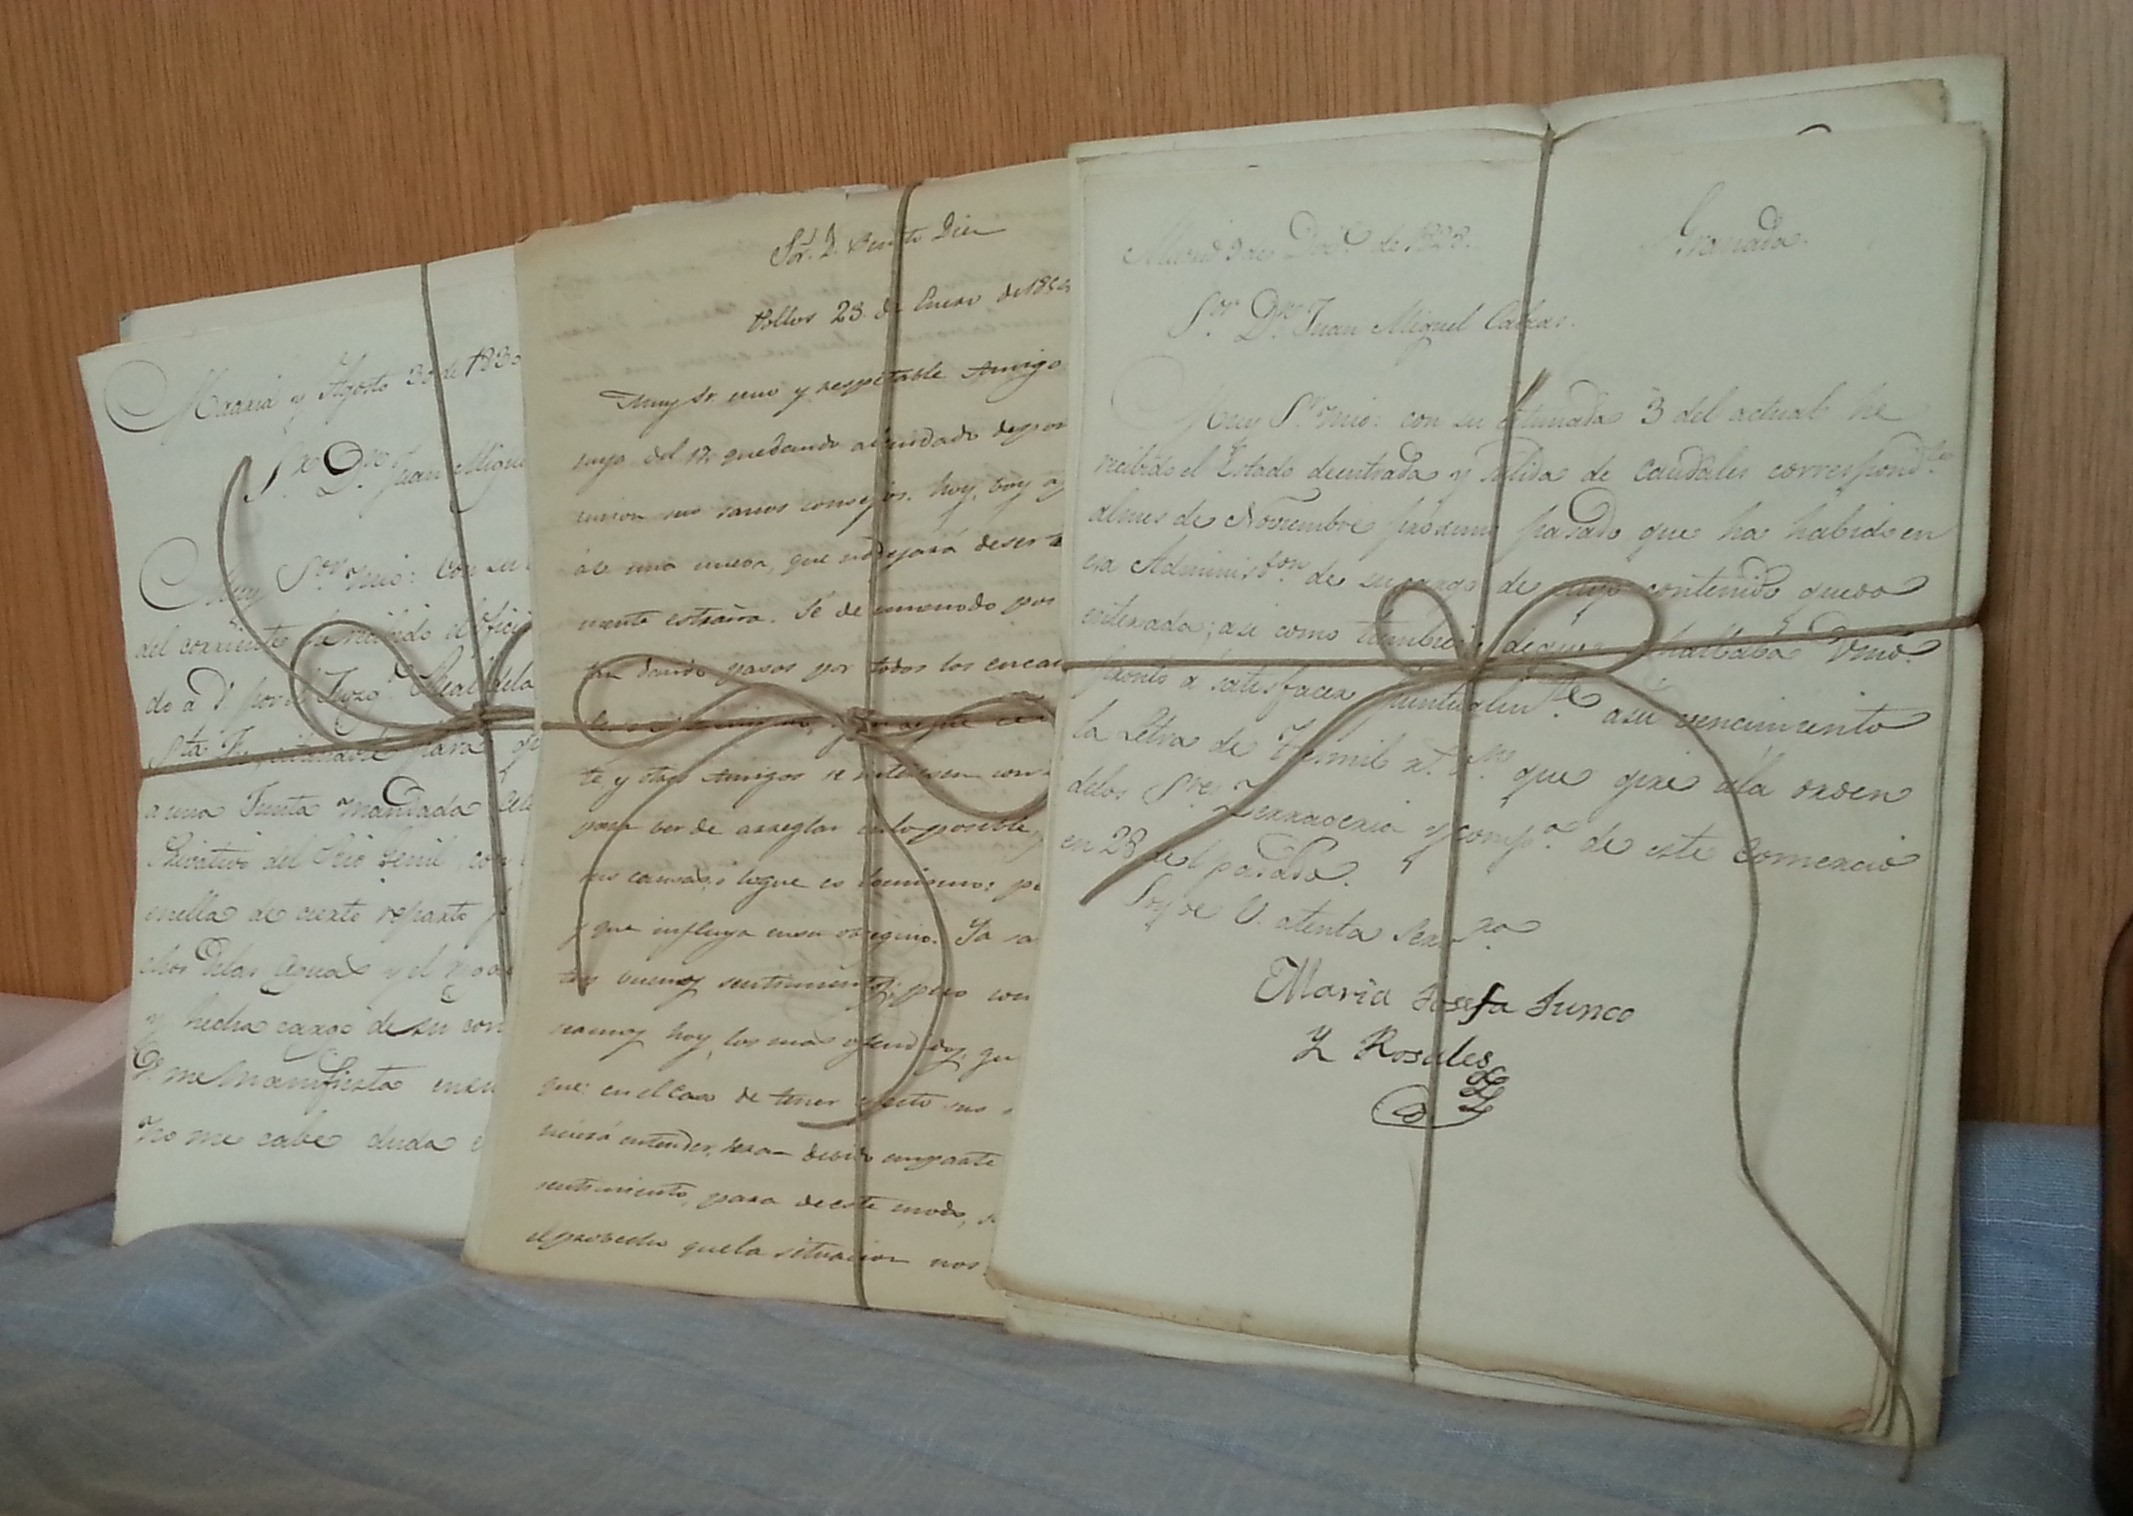 Madrid y Agosto 30 de 1830
Sr. Dn. Juan Migu
Muy Sor. mio: Con su
del corriente he recibido el ofici
do a V. por el Juzgo. Real de la
Sta. Fe, para
a una Junta mandada cele
Privativo del Rio Genil, con
en ella de cierto reparto p
chos de las aguas y el
y hecha cargo de su con
V. me manifiesta en su
no me cabe duda e
Sor. D. Benito Diez
Pollos 23 de Enero de 185
Muy Sr. mio y respetable Amigo
suya del 17, quedando de por
sus sanos consejos. Hoy, voy a
le una nueva, que no dejará de ser
mente estraña. Sé de un modo pos
dando pasos por todos los
te, y otros Amigos se interesen con
para ver de arreglar en lo posible,
sus causas, o lo que es lo mismo: p
y que influya en su obsequio. Ya sa
buenos sentimientos; pero con
seamos hoy, los mas ofendidos, qu
que: en el caso de tener efecto sus
entender, sean debido en parte
sentimiento, para de este modo, s
el provecho que la situacion nos
Madrid 9 de Dice. de 1828.
Granada.
Sor. Dn. Juan Miguel Calzas.
Muy Sr. mio: con su estimada 3 del actual he
recibido el Estado de entrada y salida de caudales correspondte.
al mes de Noviembre proximo pasado que ha habido en
esa Administron. de su cargo de cuyo contenido quedo
enterada; asi como tambien de que se hallaba Vmd.
pronto a satisfacer puntualmte. a su vencimiento
la Letra de mil rs. vn. que giré a la orden
de los Sres. y Compa. de este comercio
en 28 del pasado.
Soy de V. atenta serv.ra
Maria Josefa Junco
Y Rosales